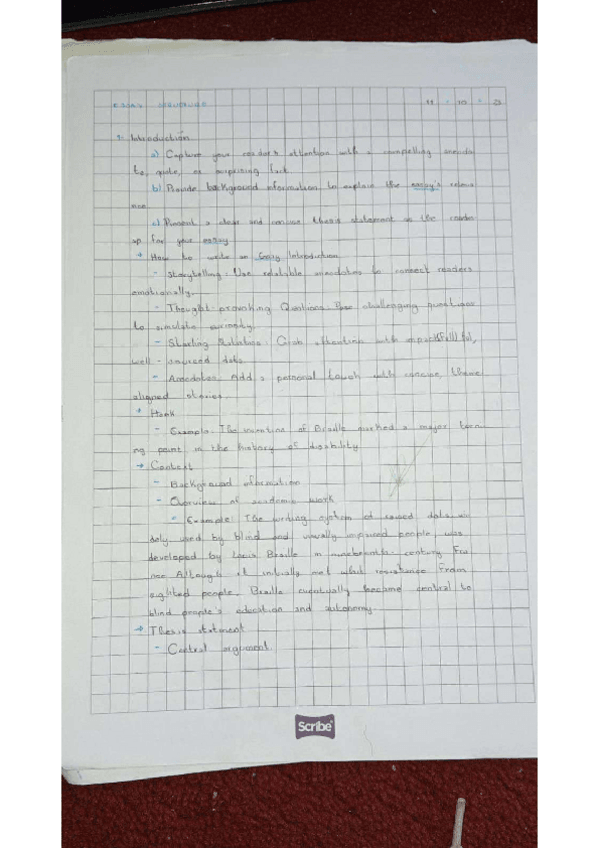 ESSAY SEQUENCE 11 - 10 - 23
1. Introduction
a) Capture your reader's attention with a compelling anecdo
te, quote, or surprising fact.
b) Provide background information to explain the essay's releva
nce
c) Present a clear and concise thesis statement as the
up for your essay
→ How to write an Essay Introduction
- Storytelling: Use relatable anecdotes to connect readers
emotionally.
- Thought-provoking Questions: Pose challenging questions
to simulate curiosity.
- Starting Grab attention with impactful,
well-
- Anecdotes: Add a personal touch with concise, theme
aligned stories.
→ Hook
- Example: The invention of Braille marked a major turn
ng point in the history of disability
→ Context
- Background information
- Overview of academic work
- Example: The writing system of raised dots wi
dely used by blind and visually impaired people was
developed by Louis Braille in century Fra
nce. Although it initially met resistance from
sighted people, Braille eventually became central to
blind people's education and autonomy.
→ Thesis statment
- Central argument.
Scribe